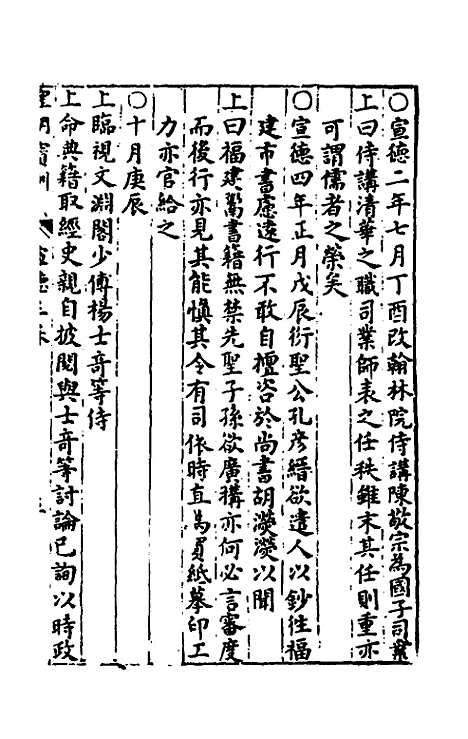 ○宣德二年七月丁酉改翰林院侍講陳敬宗為國子司業
上曰侍講清華之職司業師表之任秩雖末其任則重亦
可謂儒者之榮矣
○宣德四年正月戊辰衍聖公孔彥縉欲遣人以鈔往福
建市書慮遠行不敢自擅咨於尚書胡濙濙以聞
上曰福建鬻書籍無禁先聖子孫欲廣搆亦何必言審度
而後行亦見其能慎其令有司依時直為買紙摹印工
力亦官給之
○十月庚辰
上臨視文淵閣少傅楊士竒等侍
上命典籍取經史親自披閱與士竒等討論已詢以時政